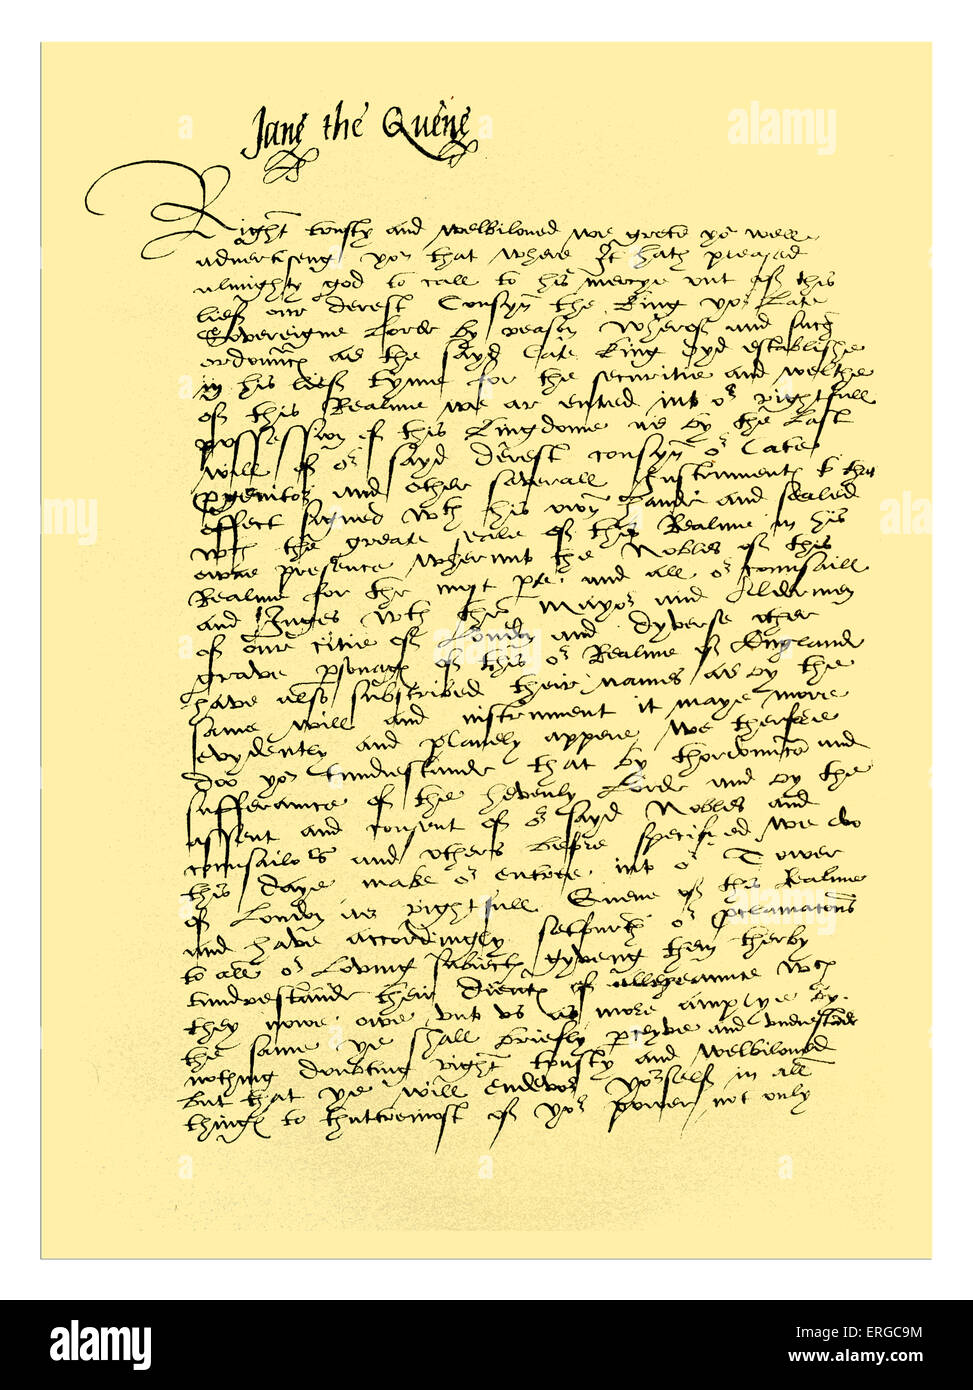 Jane the Quene
Right trusty and welbiloved we grete you well
advertiseng you that where It hath pleased
almighty god to call to his mercye out of this
lief our derest Cousyn the King your Late
Sovereigne Lorde by reason wherof and such
ordonnances as the sayd late King dyd establishe
in his lief tyme for the securitie and welthe
of this Realme we ar entred into our rightfull
possession of this Kingdome as by the Last
will of our sayd derest cousyn our late
progenitor and other severall Instruments to that
effect signed with his own hande and sealed
with the greate seale of this Realme in his
owne presence wherunto the Nobles of this
Realme for the most parte and all our counsaill
and Juges with the Mayor and Aldermen
of our citie of London and dyverse other
grave personages of this our Realme of England
have also subscribed their names as by the
same will and instrument it maye more
evydently and plainely appere We therfore
doo you tundrestande that by thordonnance and
sufferaunce of the hevenly Lorde and by the
assent and consent of our sayd Nobles and
counsailors and others before specified We do
this daye make our entree into our Tower
of London as rightfull Quene of this Realme
and have accordingly setfurth our proclamations
to all our Loving subiects gyveng them therby
tundrestande their dieuties of allegeaunce which
they nowe owe unto us as more amplye by
the same ye shall briefly perceyve and understande
nothing doubting right trusty and welbiloved
but that ye will endevor yourself in all
things to thuttermost of your power not only
a
alamy
alamy
alamy
a
alamy
a
alamy
a
a
a
alamy
Image ID: ERGC9M
www.alamy.com